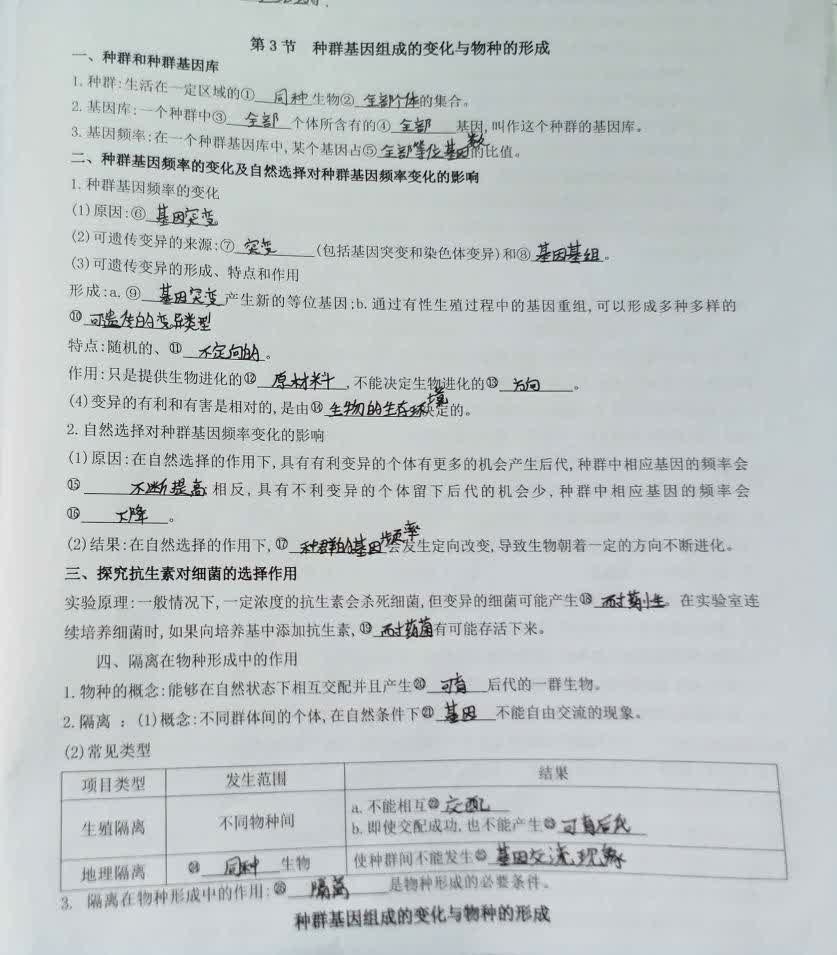 第3节 种群基因组成的变化与物种的形成
一、种群和种群基因库
1.种群:生活在一定区域的①同种生物②全部个体的集合。
2.基因库:一个种群中③全部个体所含有的④全部基因,叫作这个种群的基因库。
3.基因频率:在一个种群基因库中,某个基因占⑤全部等位基因数的比值。
二、种群基因频率的变化及自然选择对种群基因频率变化的影响
1.种群基因频率的变化
(1)原因:⑥基因突变
(2)可遗传变异的来源:⑦突变(包括基因突变和染色体变异)和⑧基因基组。
(3)可遗传变异的形成、特点和作用
形成:a.⑨基因突变产生新的等位基因;b.通过有性生殖过程中的基因重组,可以形成多种多样的
⑩可遗传的变异类型
特点:随机的、⑪不定向的。
作用:只是提供生物进化的⑫原材料,不能决定生物进化的⑬方向。
(4)变异的有利和有害是相对的,是由⑭生物的生存环境决定的。
2.自然选择对种群基因频率变化的影响
(1)原因:在自然选择的作用下,具有有利变异的个体有更多的机会产生后代,种群中相应基因的频率会
⑮不断提高 相反,具有不利变异的个体留下后代的机会少,种群中相应基因的频率会
⑯下降。
(2)结果:在自然选择的作用下,⑰种群的基因频率会发生定向改变,导致生物朝着一定的方向不断进化。
三、探究抗生素对细菌的选择作用
实验原理:一般情况下,一定浓度的抗生素会杀死细菌,但变异的细菌可能产生⑱耐药性。在实验室连
续培养细菌时,如果向培养基中添加抗生素,⑲耐药菌有可能存活下来。
四、隔离在物种形成中的作用
1.物种的概念:能够在自然状态下相互交配并且产生⑳可育后代的一群生物。
2.隔离：(1)概念:不同群体间的个体,在自然条件下㉑基因不能自由交流的现象。
(2)常见类型
项目类型 发生范围 结果
生殖隔离 不同物种间 a.不能相互㉒交配
b.即使交配成功,也不能产生㉓可育后代
地理隔离 ㉔同种生物 使种群间不能发生㉕基因交流现象
3. 隔离在物种形成中的作用:㉖隔离是物种形成的必要条件。
种群基因组成的变化与物种的形成